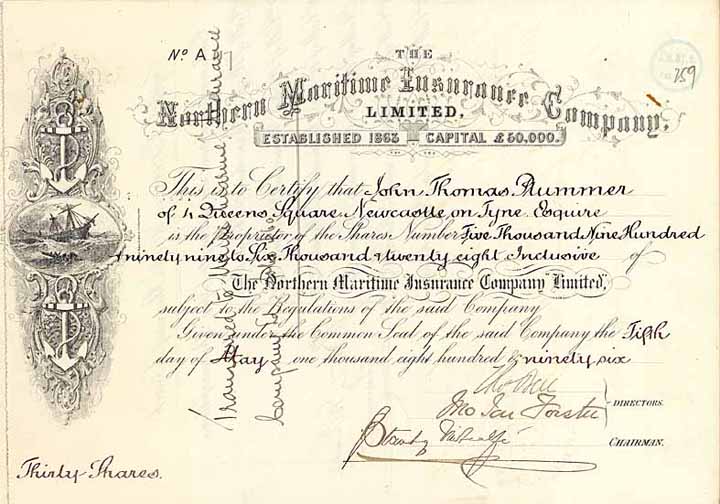 No A
THE
Northern Maritime Insurance Company.
LIMITED.
ESTABLISHED 1863 CAPITAL £50.000.
759
This is to Certify that John Thomas Plummer
of 4 Queens Square Newcastle on Tyne Esquire
is the Proprietor of the Shares Number Five Thousand Nine Hundred
& ninety nine to Six Thousand & twenty eight Inclusive of
"The Northern Maritime Insurance Company" Limited,
subject to the Regulations of the said Company
Given under the Common Seal of the said Company the Fifth
day of May one thousand eight hundred & ninety six
DIRECTORS.
CHAIRMAN.
Thirty Shares.
Transferred to Insurance
Company